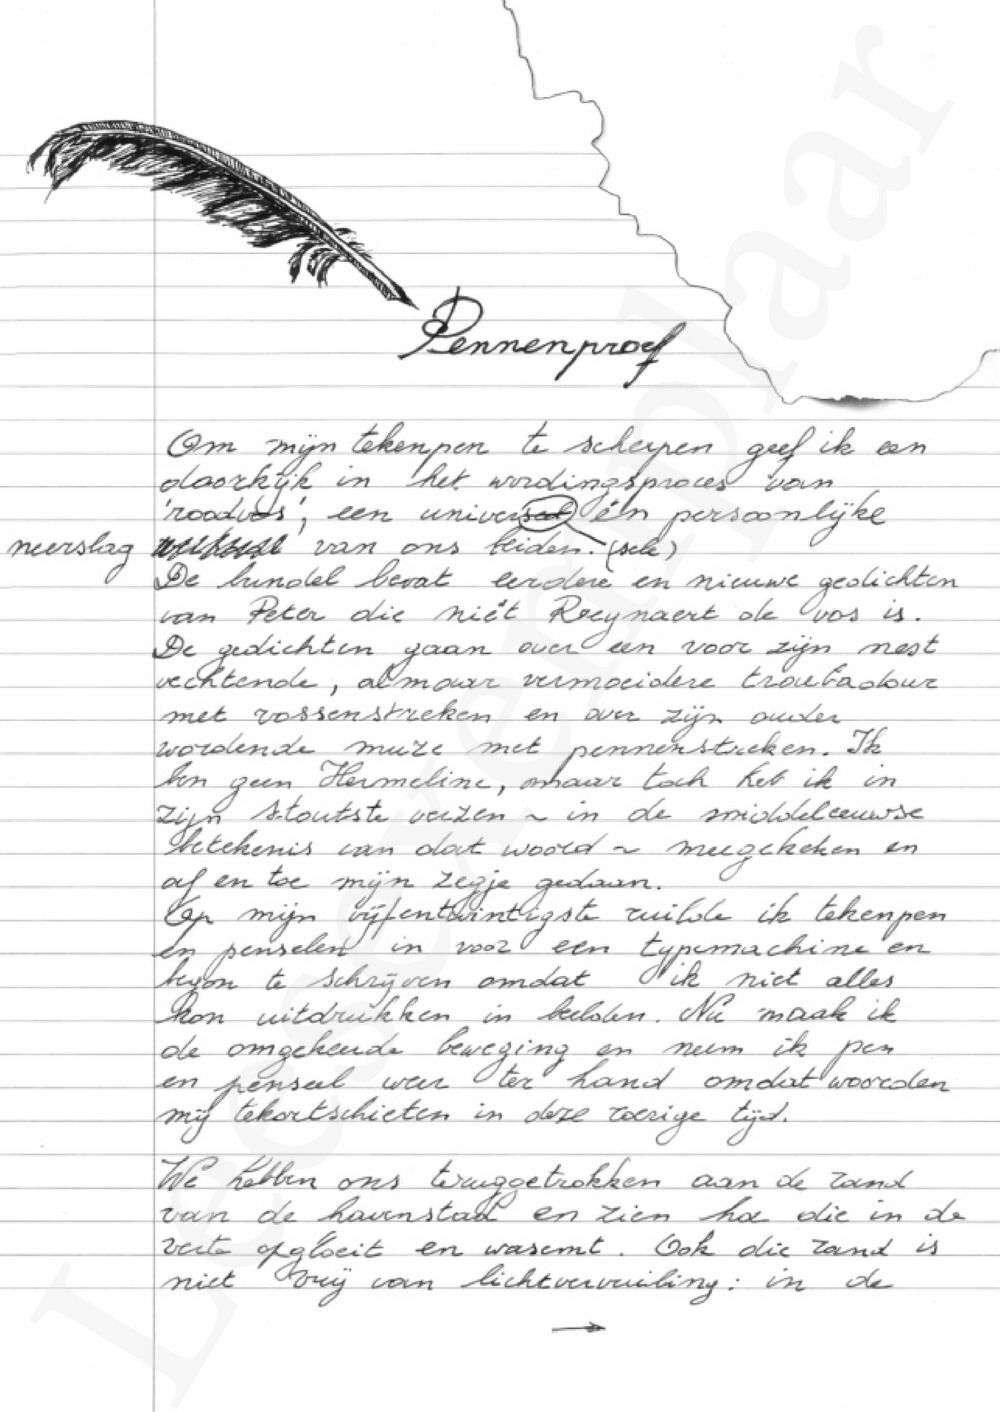 Pennenproef
Om mijn tekenpen te scherpen geef ik een
doorkijk in het wordingsproces van
'roodvos', een universeel én persoonlijke
neerslag van ons beiden. (sele)
De bundel bevat eerdere en nieuwe gedichten
van Peter die niet Reynaert de vos is.
De gedichten gaan over een voor zijn nest
vechtende, almaar vermoeidere troubadour
met vossenstreken en over zijn ouder
wordende muze met pennenstreken. Ik
ben geen Hermeline, maar toch heb ik in
zijn stoutste verzen ~ in de middeleeuwse
betekenis van dat woord ~ meegekeken en
af en toe mijn zegje gedaan.
Op mijn vijfentwintigste ruilde ik tekenpen
en penselen in voor een typemachine en
begon te schrijven omdat ik niet alles
kon uitdrukken in beelden. Nu maak ik
de omgekeerde beweging en neem ik pen
en penseel weer ter hand omdat woorden
mij tekortschieten in deze roerige tijd.
We hebben ons teruggetrokken aan de rand
van de havenstad en zien hoe die in de
verte opgloeit en wasemt. Ook die rand is
niet vrij van lichtvervuiling: in de
→
Leesexemplaar